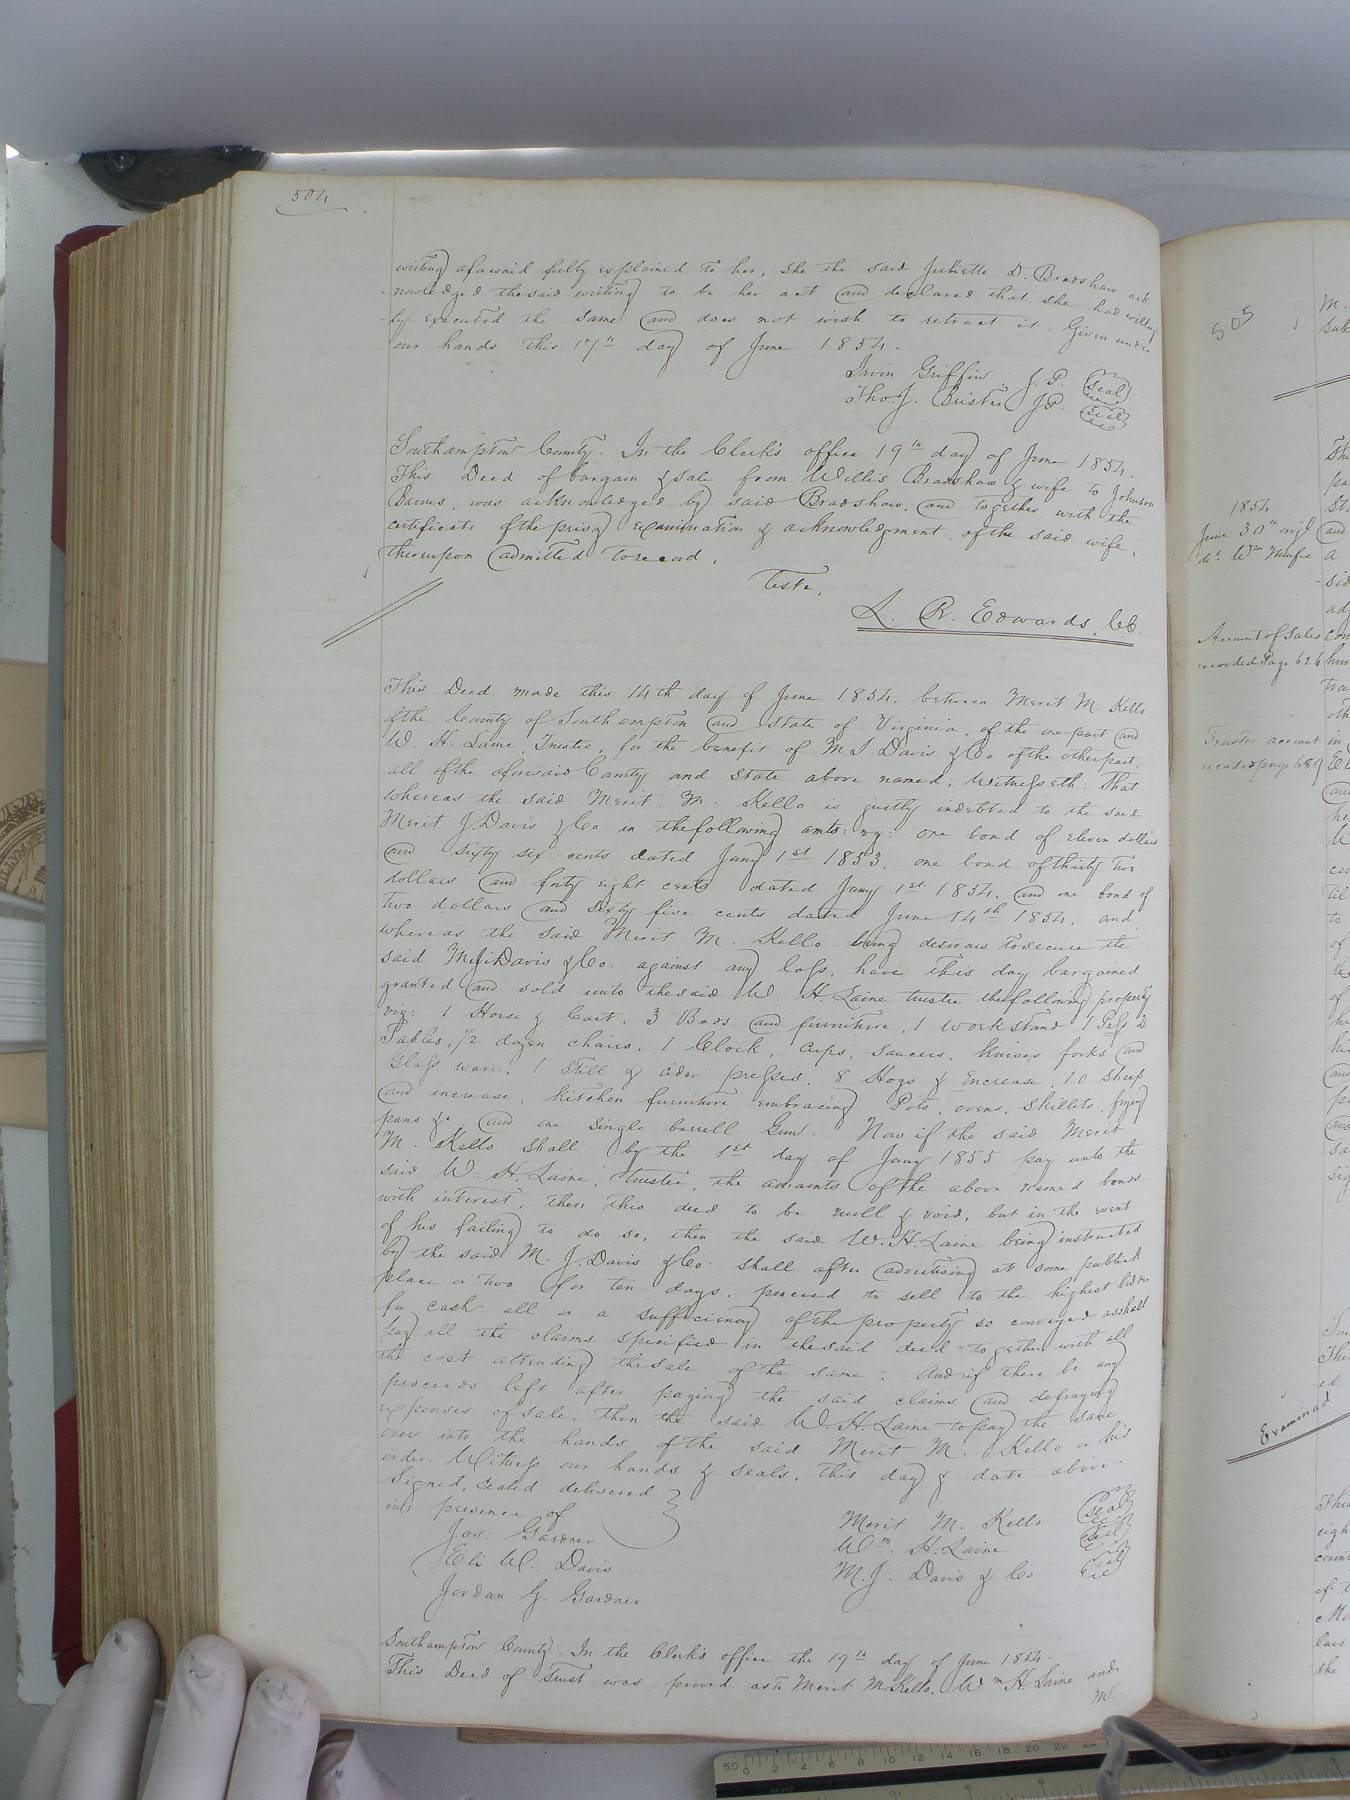 504
writing aforesaid fully explained to her, she the said Juliette D. Bradshaw ack
nowledged the said writing to be her act and declared that she had willing
ly executed the same and does not wish to retract it. Given under
our hands this 17th day of June 1854.
Irvin Griffin J.P. Seal
Tho. J. JP. Seal
Southampton County. In the Clerk's office 19th day of June 1854.
This Deed of bargain & sale from Willis Bradshaw & wife to Johnson
Barnes, was acknowledged by said Bradshaw, and together with the
certificate of the privy examination & acknowledgment of the said wife,
thereupon admitted to record.
Teste,
L. R. Edwards, CC.
This Deed made this 14th day of June 1854, between Merit M. Kello
of the County of Southampton and State of Virginia, of the one part and
W. H. Laine, Trustee, for the benefit of M. J. Davis & Co of the other part,
all of the aforesaid County and State above named; Witnesseth: That
whereas the said Merit M. Kello is justly indebted to the said
Merit J. Davis & Co in the following amts: viz: one bond of Eleven dollars
and sixty six cents dated Jany 1st 1853, one bond of thirty two
dollars and forty eight cents dated Jany 1st 1854, and one bond of
two dollars and sixty five cents dated June 14th 1854, and
whereas the said Merit M. Kello being desirous to secure the
said Merit J Davis & Co: against any loss, have this day bargained
granted and sold unto the said W. H. Laine trustee the following property
viz: 1 Horse & Cart, 3 Beds and furniture, 1 work stand 1
Tables, 1/2 dozen chairs, 1 Clock, Cups, Saucers, Knives forks and
Glass ware, 1 Still & cider presses, 8 Hogs & Encrease, 10 Sheep
and increase, kitchen furniture embracing Pots, ovens, Skillets, frying
pans &c, and one Single barrell Gun. Now if the said Merit
M. Kello shall by the 1st day of Jany 1855 pay unto the
said W. H. Laine, trustee, the amounts of the above named bonds
with interest, then this deed to be null & void, but in the event
of his failing to do so, then the said W. H. Laine being instructed
by the said M. J. Davis & Co: shall after advertising at some publick
place or two for ten days, proceed to sell to the highest bidder
for cash all or a sufficiency of the property so conveyed as shall
pay all the claims specified in the said deed together with all
the cost attending the sale of the same; And if there be any
proceeds left after paying the said claims and defraying
expenses of sale, then the said W. H. Laine to pay the same
over into the hands of the said Merit M. Kello or his
order. Witness our hands & seals, this day & date above.
Signed, sealed delivered
in presence of
Jos: Gardner
Eli W. Davis
Jordan G. Gardner
Merit M. Kello Seal
Wm. H. Laine Seal
M. J. Davis & Co Seal
Southampton County. In the Clerk's office the 19th day of June 1854.
This Deed of Trust was proved as to Merit M Kello, Wm H. Laine and
M.
505
1854
June 30th
Account of Sales
recorded Page 626
Trustees account
recorded page 689
Examined